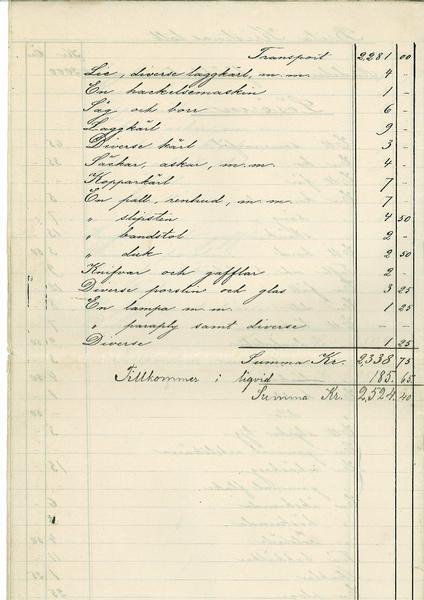 Transport 2,281 00
Lie, diverse laggkärl, m. m. 4 -
En hackelsemaskin 1 -
Såg och borr 6 -
Laggkärl 9 -
Diverse kärl 3 -
Säckar, askar, m. m. 4 -
Kopparkärl 7 -
En pall, renhud, m. m. 7 -
" slipsten 4 50
" bandstol 2 -
" duk 2 50
Knifvar och gafflar 2 -
Diverse porslin och glas 3 25
En lampa m. m. 1 25
" paraply samt diverse - -
Diverse 1 25
Summa Kr. 2,338 75
Tillkommer i liqvid 185. 65.
Summa Kr. 2,524. 40